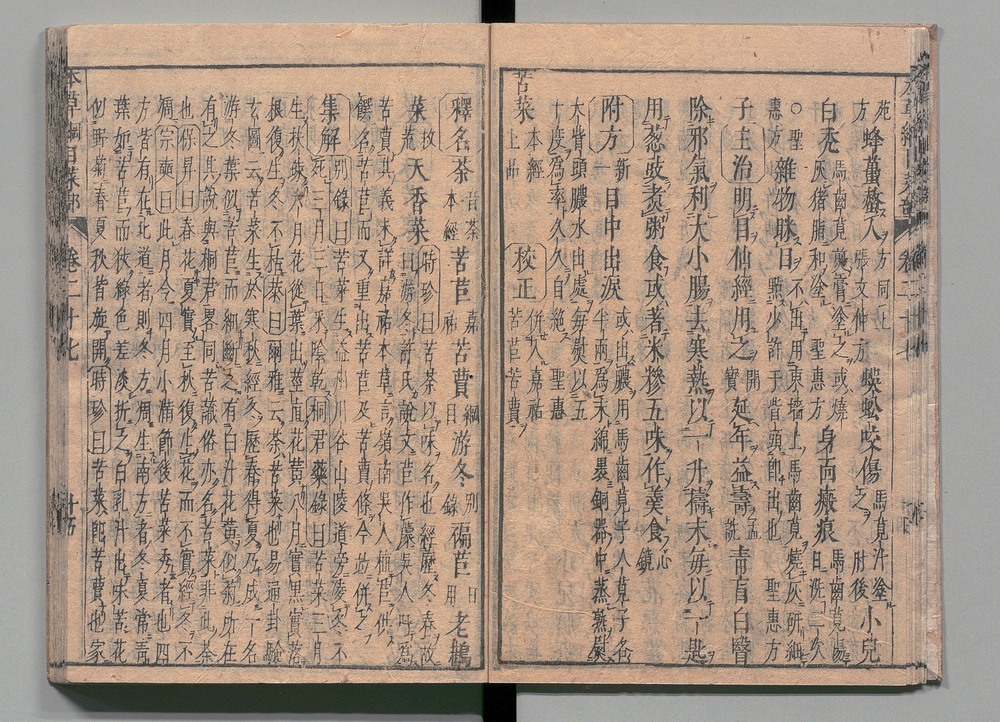 苑 方同上
方 蜂蠆螫人 張文仲方 蜈蚣咬傷 馬莧汁塗之 肘後 小兒
白禿 馬齒莧煎膏塗之或燒
灰猪脂和塗 聖惠方 身面瘢痕 馬齒莧湯
日洗二次
○聖
惠方 雜物眯目 不出用東墻上馬齒莧燒灰研細
點少許于眥頭即出也 聖惠方
子主治明目仙經用之 開寶 延年益壽 孟詵 青盲白瞖
除邪氣利大小腸去寒熱以一升擣末每以一匙
用葱豉煮粥食或著米糝五味作羹食 心鏡
附方 新一 目中出淚 或出膿用馬齒莧子人莧子各
半兩為末綿裹銅器中蒸熱熨
大眥頭膿水出處每熨以五
十度為率久久自絕 聖惠
苦菜 本經上品 校正 併入嘉祐苦苣苦蕒
釋名荼 音茶本經 苦苣 嘉祐 苦蕒 綱目 游冬 別錄 褊苣 日用 老鸛
菜 救荒 天香菜 時珍曰苦荼以味名也經歷冬春故
曰游冬許氏說文苣作吳人呼為
苦蕒其義未詳嘉祐本草言嶺南吳人植苣供
饌名苦苣而又重出苦苣及苦蕒條今並併之
集解 別錄曰苦菜生益州川谷山陵道旁凌冬不
死三月三日采陰乾桐君藥錄曰苦菜三月
生扶疎六月花從葉出莖直花黃八月實黑實落
根復生冬不枯 萊目爾雅云荼苦菜也易通卦驗
玄圖云苦菜生於寒秋經冬歷春得夏乃成一名
游冬葉似苦苣而細斷之有白汁花黃似菊所在
有之其說與桐君畧同苦俗亦名苦菜非此荼
也保昇曰春花夏實至秋復生花而不實經冬不
凋宗奭曰此月令四月小滿節後苦菜秀者也四
方皆有在北道者則冬方凋生南方者冬夏常青
葉如苦苣而狹綠色差淡折之白乳汁出味苦花
似野菊春夏秋皆旋開時珍曰苦菜即苦蕒也家
本草綱目菜部 卷二十七